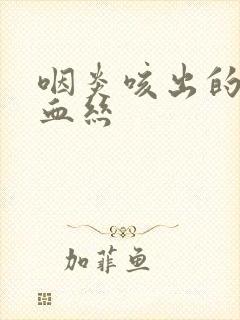 咽炎咳出的
血丝
加菲鱼